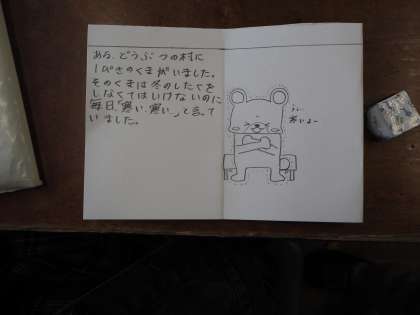 ある、どうぶつの村に
1ぴきのくまがいました。
そのくまは冬のしたくを
しなくてはいけないのに
毎日「寒い、寒い」と言って
いました。
寒いよー